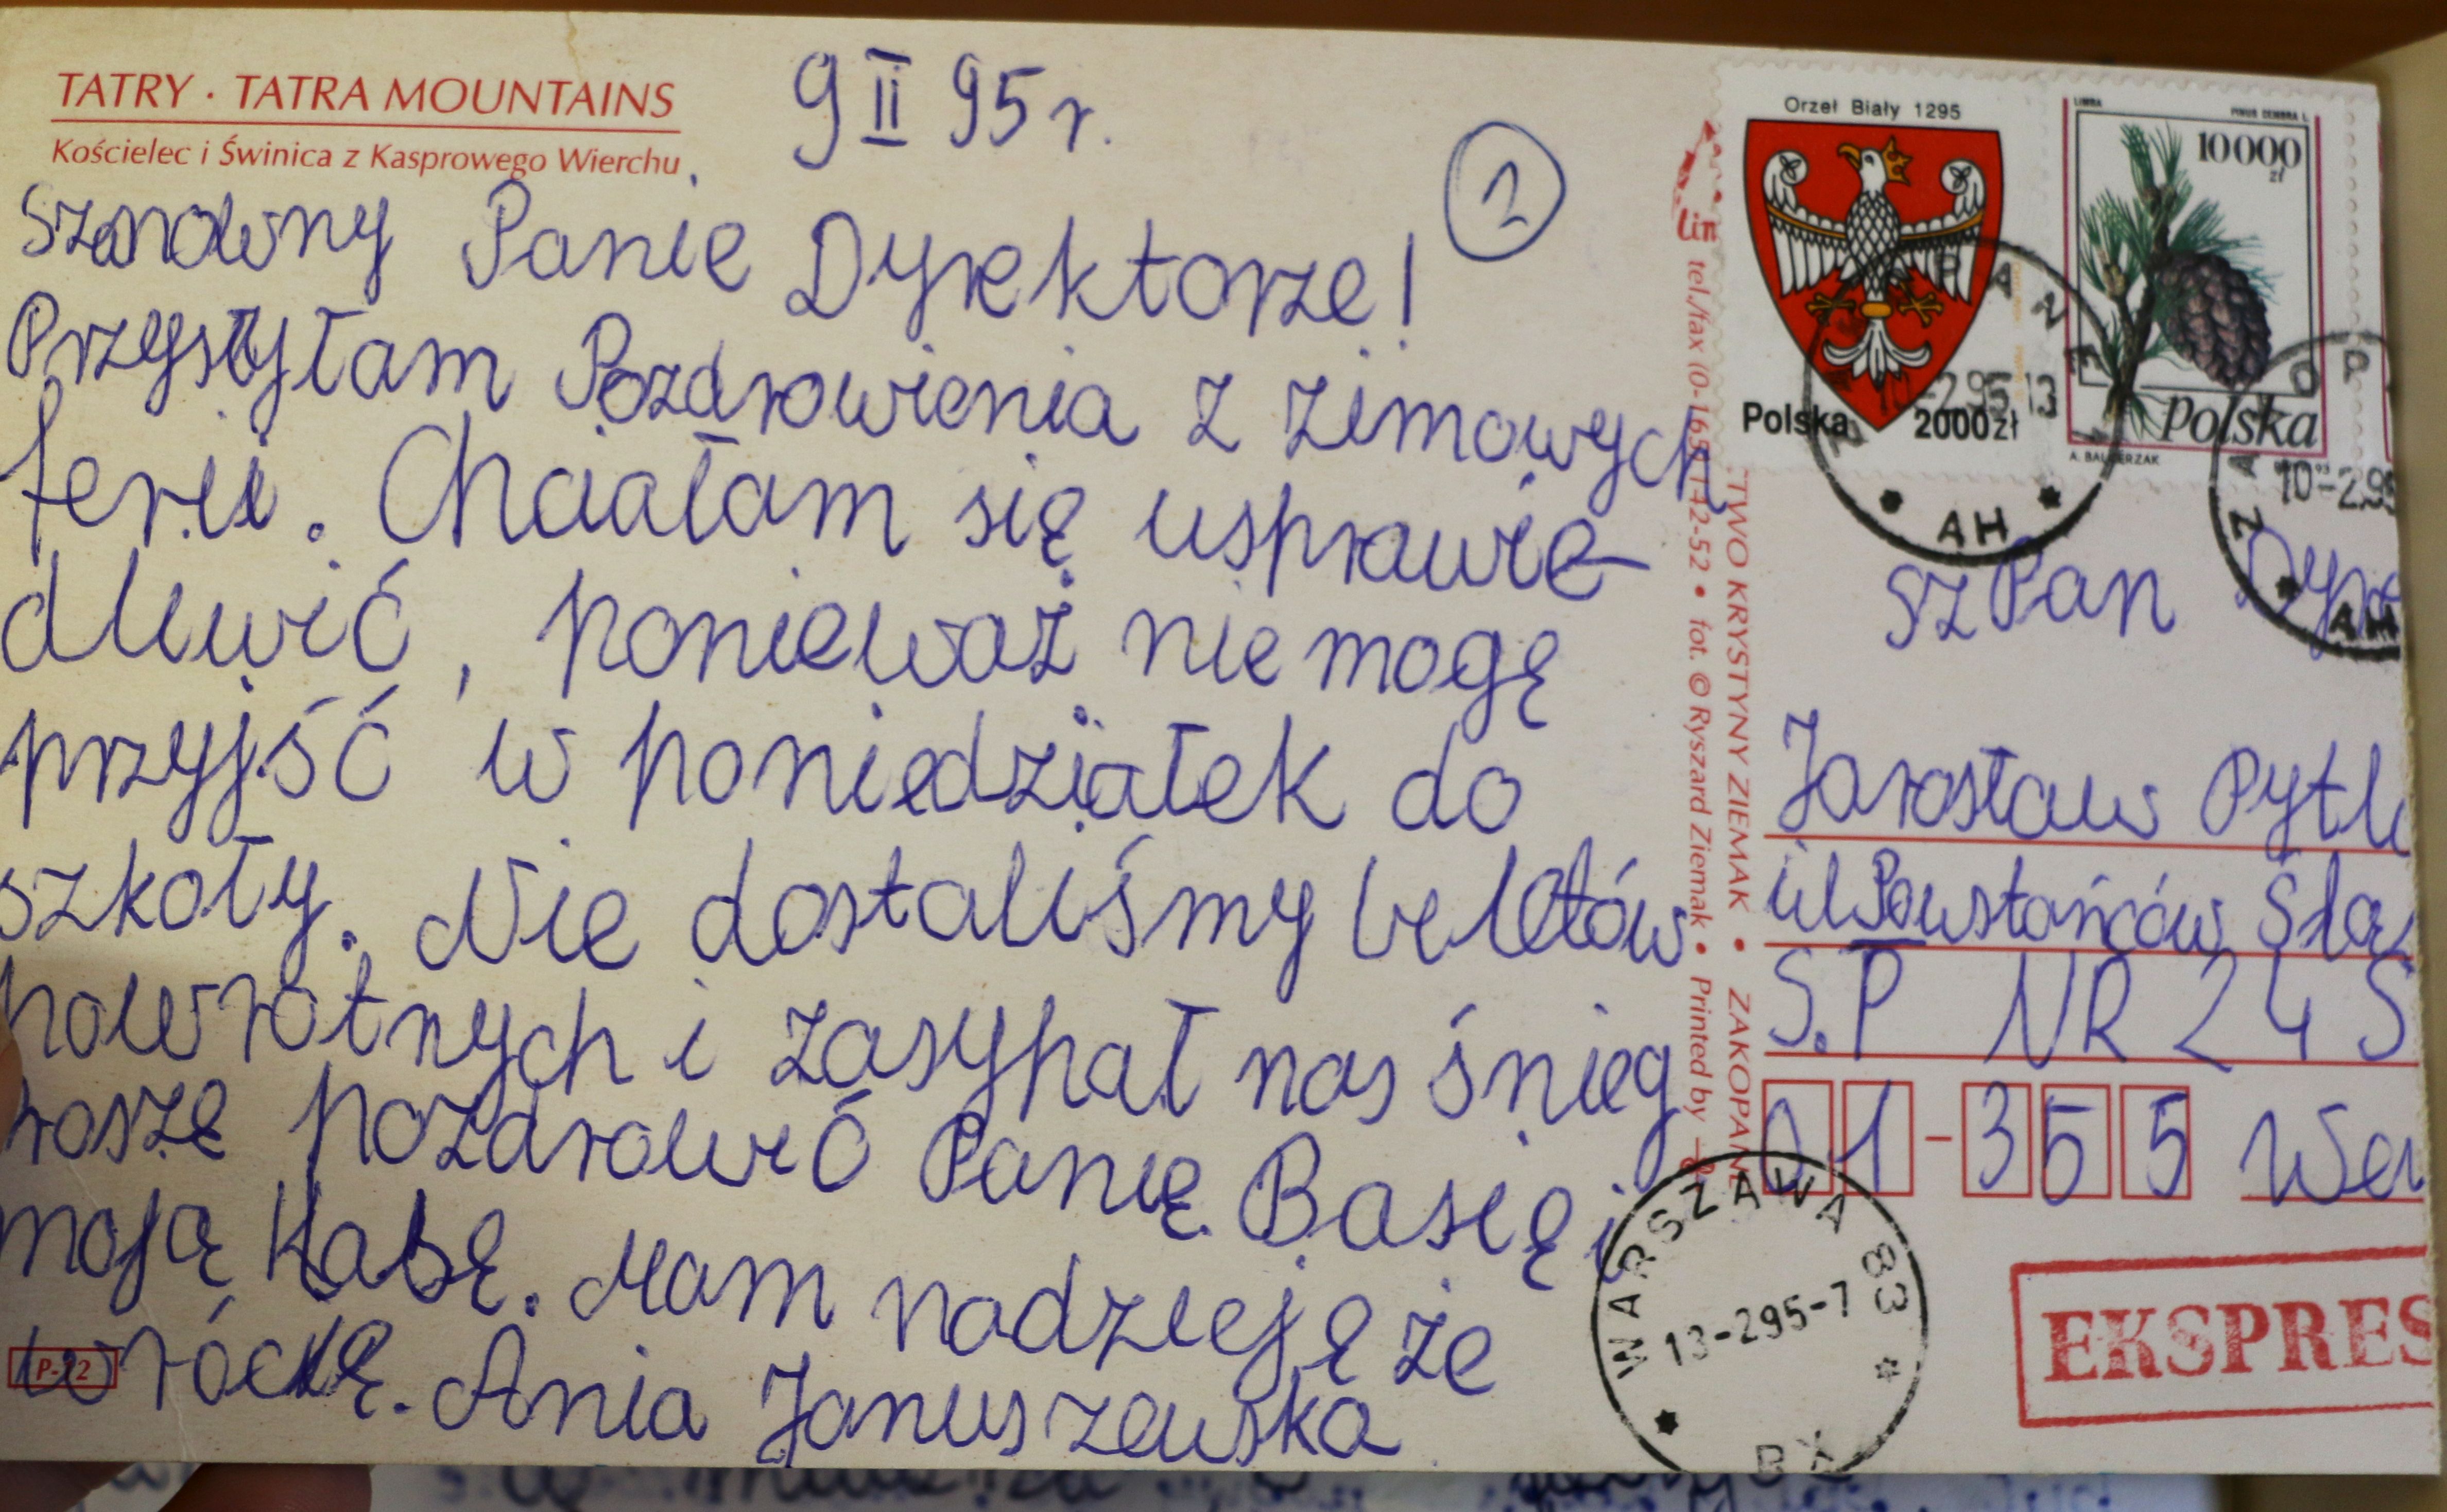 TATRY · TATRA MOUNTAINS
Kościelec i Świnica z Kasprowego Wierchu
9 II 95 r.
2
Szanowny Panie Dyrektorze!
Przysyłam Pozdrowienia z zimowych
ferii. Chciałam się usprawie-
dliwić, ponieważ nie mogę
przyjść w poniedziałek do
szkoły. Nie dostaliśmy biletów
powrotnych i zasypał nas śnieg
roszę pozdrowić Panię Basię i
moją Kasię. Mam nadzieję że
wrócę. Ania Januszewska
P-22
lin
tel./fax (0-165) 142-52 • fot. © Ryszard Ziemak • Printed by
TWO KRYSTYNY ZIEMAK • ZAKOPANE
Orzeł Biały 1295
Polska 2000 zł
LIMBA
PINUS CEMBRA L.
10000 zł
Polska
A. BALCERZAK
AH
10-2.95
AH
Sz Pan Dyre
Jarosław Pytl
ul PowstańcówŚlą
S.P NR 24 S
01-355 Wa
WARSZAWA 83
13-295-7
BX
EKSPRES